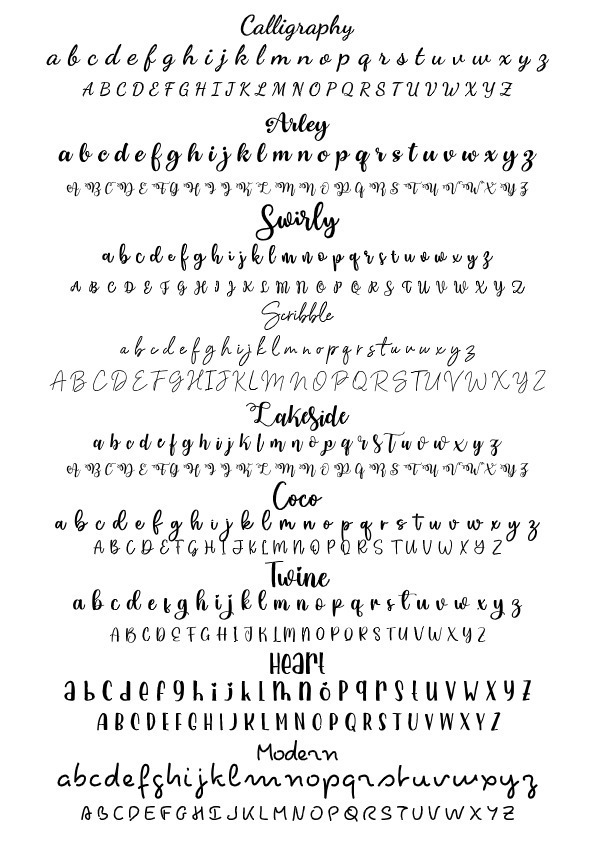 Calligraphy
a b c d e f g h i j k l m n o p q r s t u v w x y z
A B C D E F G H I J K L M N O P Q R S T U V W X Y Z
Arley
a b c d e f g h i j k l m n o p q r s t u v w x y z
A B C D E F G H I J K L M N O P Q R S T U V W X Y Z
Swirly
a b c d e f g h i j k l m n o p q r s t u v w x y z
A B C D E F G H I J K L M N O P Q R S T U V W X Y Z
Scribble
a b c d e f g h i j k l m n o p q r s t u v w x y z
A B C D E F G H I J K L M N O P Q R S T U V W X Y Z
Lakeside
a b c d e f g h i j k l m n o p q r s t u v w x y z
A B C D E F G H I J K L M N O P Q R S T U V W X Y Z
Coco
a b c d e f g h i j k l m n o p q r s t u v w x y z
A B C D E F G H I J K L M N O P Q R S T U V W X Y Z
Twine
a b c d e f g h i j k l m n o p q r s t u v w x y z
A B C D E F G H I J K L M N O P Q R S T U V W X Y Z
Heart
a b c d e f g h i j k l m n o p q r s t u v w x y z
A B C D E F G H I J K L M N O P Q R S T U V W X Y Z
Modern
a b c d e f g h i j k l m n o p q r s t u v w x y z
A B C D E F G H I J K L M N O P Q R S T U V W X Y Z